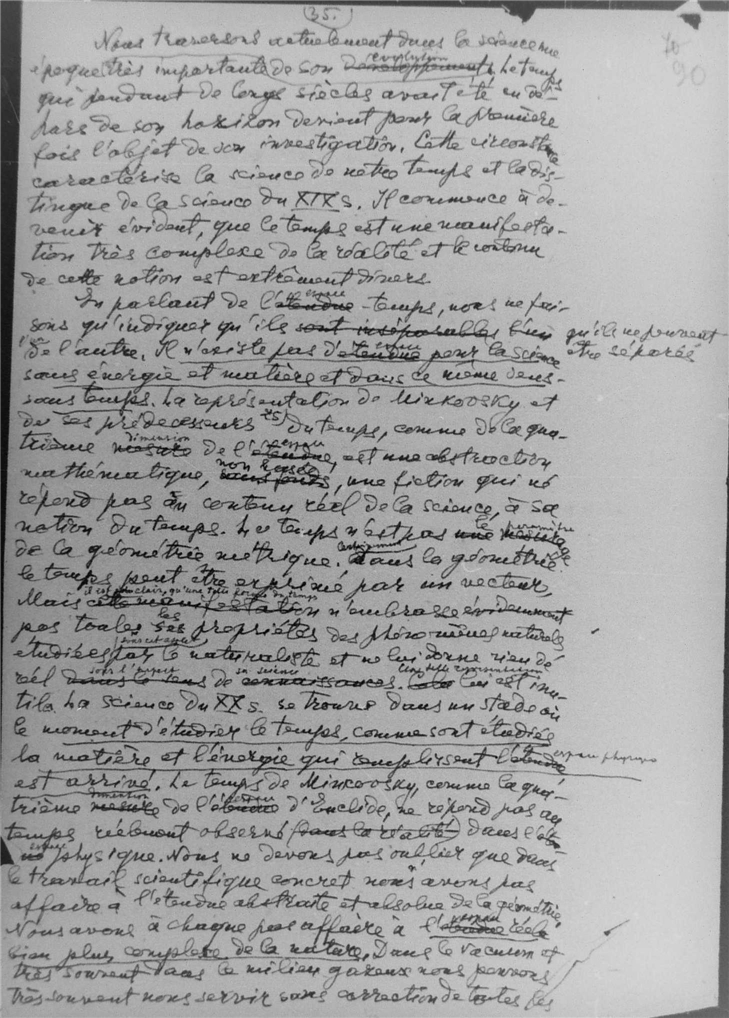 35.
70
90
Nous traversons actuelement dans la science une
époque très importante de son developpement évolution. Le temps
qui pendant de longs siècles avait été en de-
hors de son horizon devient pour la première
fois l'objet de son investigation. Cette circonstance
caractérise la science de nôtre temps et la dis-
tingue de la science du XIX s. Il commence à de-
venir évident, que le temps est une manifesta-
tion très complexe de la réalité et le contenu
de cette notion est extrêment divers.
En parlant de l'étendue espace-temps, nous ne fai-
sons qu'indiquer qu'ils sont inséparables l'un qu'ils ne peuvent
de l'autre. Il n'existe pas d'étendue espace pour la science être séparés
sans énergie et matière et dans ce même sens-
sans temps. La représentation de Minkovsky et
de ses prédecesseurs du temps, comme de la qua-
trième mesure dimension de l'étendue espace, est une abstraction
mathématique, sans fonds non basée, une fiction qui ne
répond pas au contenu réel de la science, à sa
notion du temps. Le temps n'est pas une mesure
de la géométrie métrique. Dans la géométrie
le temps peut être exprimé par un vecteur,
il est clair, qu'une telle du temps
Mais cette manifestation n'embrasse évidemment
pas toutes ses les propriétés des phénomènes naturels
étudiées par le naturaliste et ne lui donne rien de
réel dans le sens de connaissances. lui est inu-
tile. La science du XX s. se trouve dans un stade où
le moment d'étudier le temps, comme sont étudiée
la matière et l'énergie qui remplissent l'étendue espace physique
est arrivé. Le temps de Minkovsky, comme la qua-
trième mesure dimension de l'étendue espace d'Euclide, ne répond pas au
temps réelment observé (dans la réalité) dans l'éten-
due espace physique. Nous ne devons pas oublier que dans
le travail scientifique concret nous n'avons pas
affaire à l'étendue abstraite et absolue de la géométrie.
Nous avons à chaque pas affaire à l'étendue espace réele
bien plus complexe de la nature. Dans le vacuum et
très souvent dans le milieu gazeux nous pouvons
très souvent nous servir sans correction de toutes les